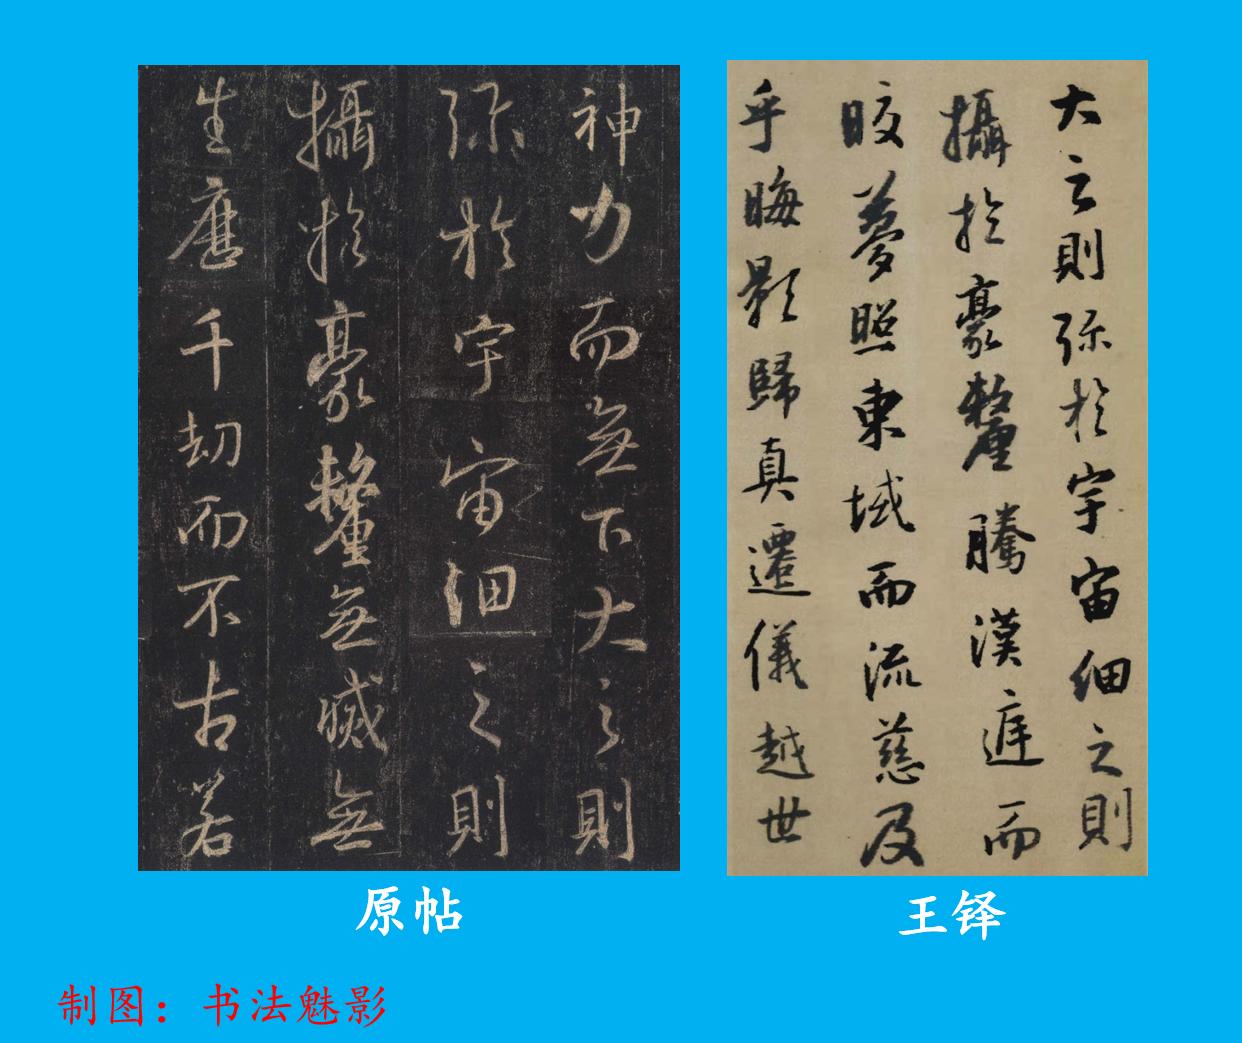 神力而無下大之則
弥於宇宙細之則
攝於豪釐無滅無
生歷千劫而不古若
大之則弥於宇宙細之則
攝於豪釐騰漢庭而
皎夢照東域而流慈及
乎晦影歸真遷儀越世
原帖
王铎
制图：书法魅影